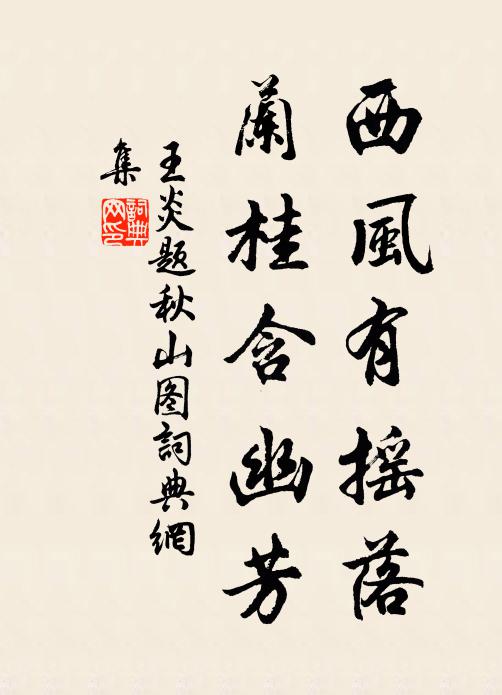 西風有摇落
蘭桂含幽芳
王炎题秋山图詞典網
集
詞典网印